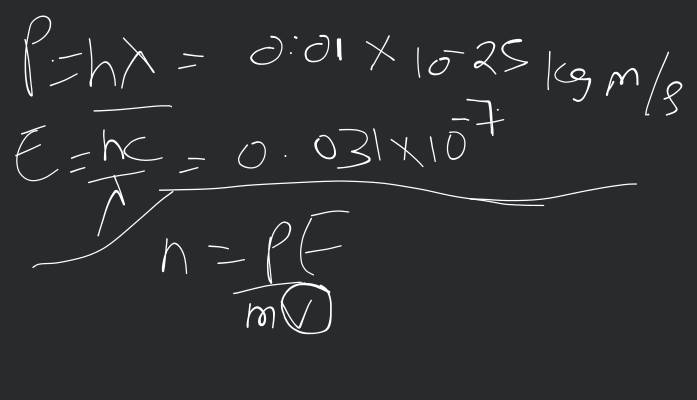 P = hλ = 0.01 × 10^-25 kg m/s
E = hc/λ = 0.031 × 10^-7
n = PE/mv